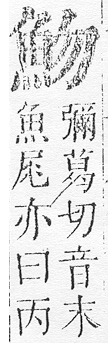 魩
彌葛切音末
魚尾亦曰丙